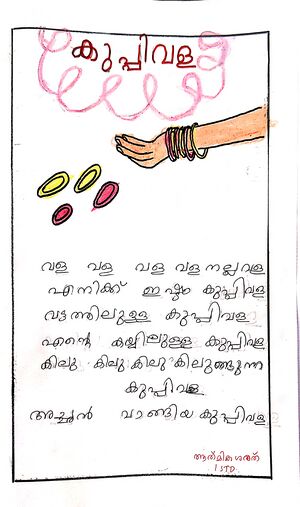 കുപ്പിവള
വള വള വള വള നല്ലവള
എനിക്ക് ഇഷ്ടം കുപ്പിവള
വട്ടത്തിലുള്ള കുപ്പിവള
എന്റെ കയ്യിലുള്ള കുപ്പിവള
കിലു കിലു കിലു കിലുങ്ങുന്ന
കുപ്പിവള
അച്ഛൻ വാങ്ങിയ കുപ്പിവള
ആത്മിക ശരത്
1 STD